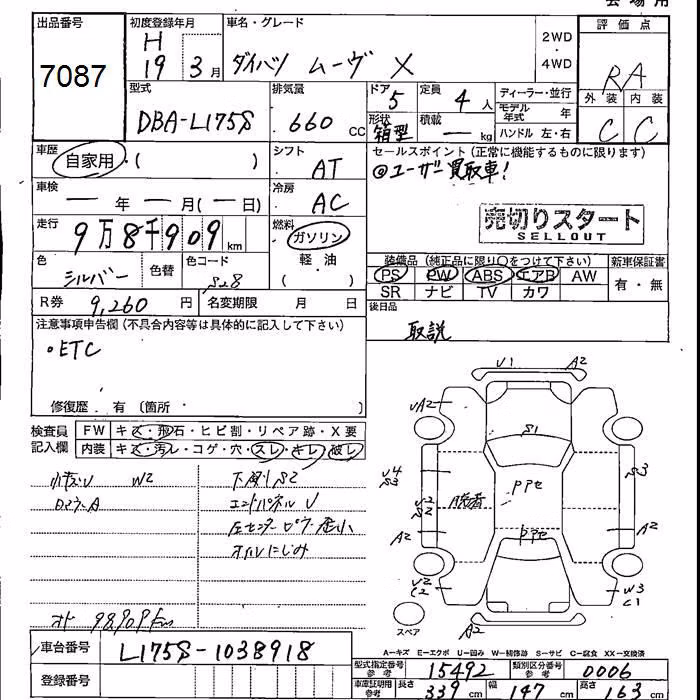 出品番号 初度登録年月 車名・グレード 評価点
7087 H 19 3月 ダイハツ ムーヴ X 2WD・4WD RA
型式 排気量 ドア 5 定員 4人 ディーラー・並行 外装 内装
DBA-L175S 660 CC 形状 箱型 積載 ー kg モデル年式 年 ハンドル 左・右 C C
車歴 自家用・( ) シフト AT セールスポイント(正常に機能するものに限ります)
車検 ー年ー月(ー日) 冷房 AC @ユーザー買取車!
売切りスタート
SELLOUT
走行 9万8千909km 燃料 ガソリン 軽・油 ( )
装備品(純正品に限り○をつけて下さい) 新車保証書
色 シルバー 色替 色コード S28 PS PW ABS エアB AW 有・無
SR ナビ TV カワ
R券 9,260円 名変期限 月 日 後日品
注意事項申告欄(不具合内容等は具体的に記入して下さい) 取説
・ETC
修復歴 有 〔箇所・ 〕
検査員記入欄 FW キズ・飛石・ヒビ割・リペア跡・X要
内装 キズ・汚レ・コゲ・穴・スレ・キレ・破レ
W2 下廻りS2
エンドパネルU
オイルにじみ
98909km
U1 A2
UA2
S1
U4 S3
PPセ
S3
A2
A2
U2 C2
W3 C1
スペア
A2
A=キズ E=エクボ U=凹み W=補修跡 S=サビ C=腐食 XX=交換済
車台番号 L175S-1038918
登録番号
型式指定番号 参考 15492 類別区分番号 参考 0006
車庫証明用 参考 長さ 339cm 幅 147cm 高さ 163cm